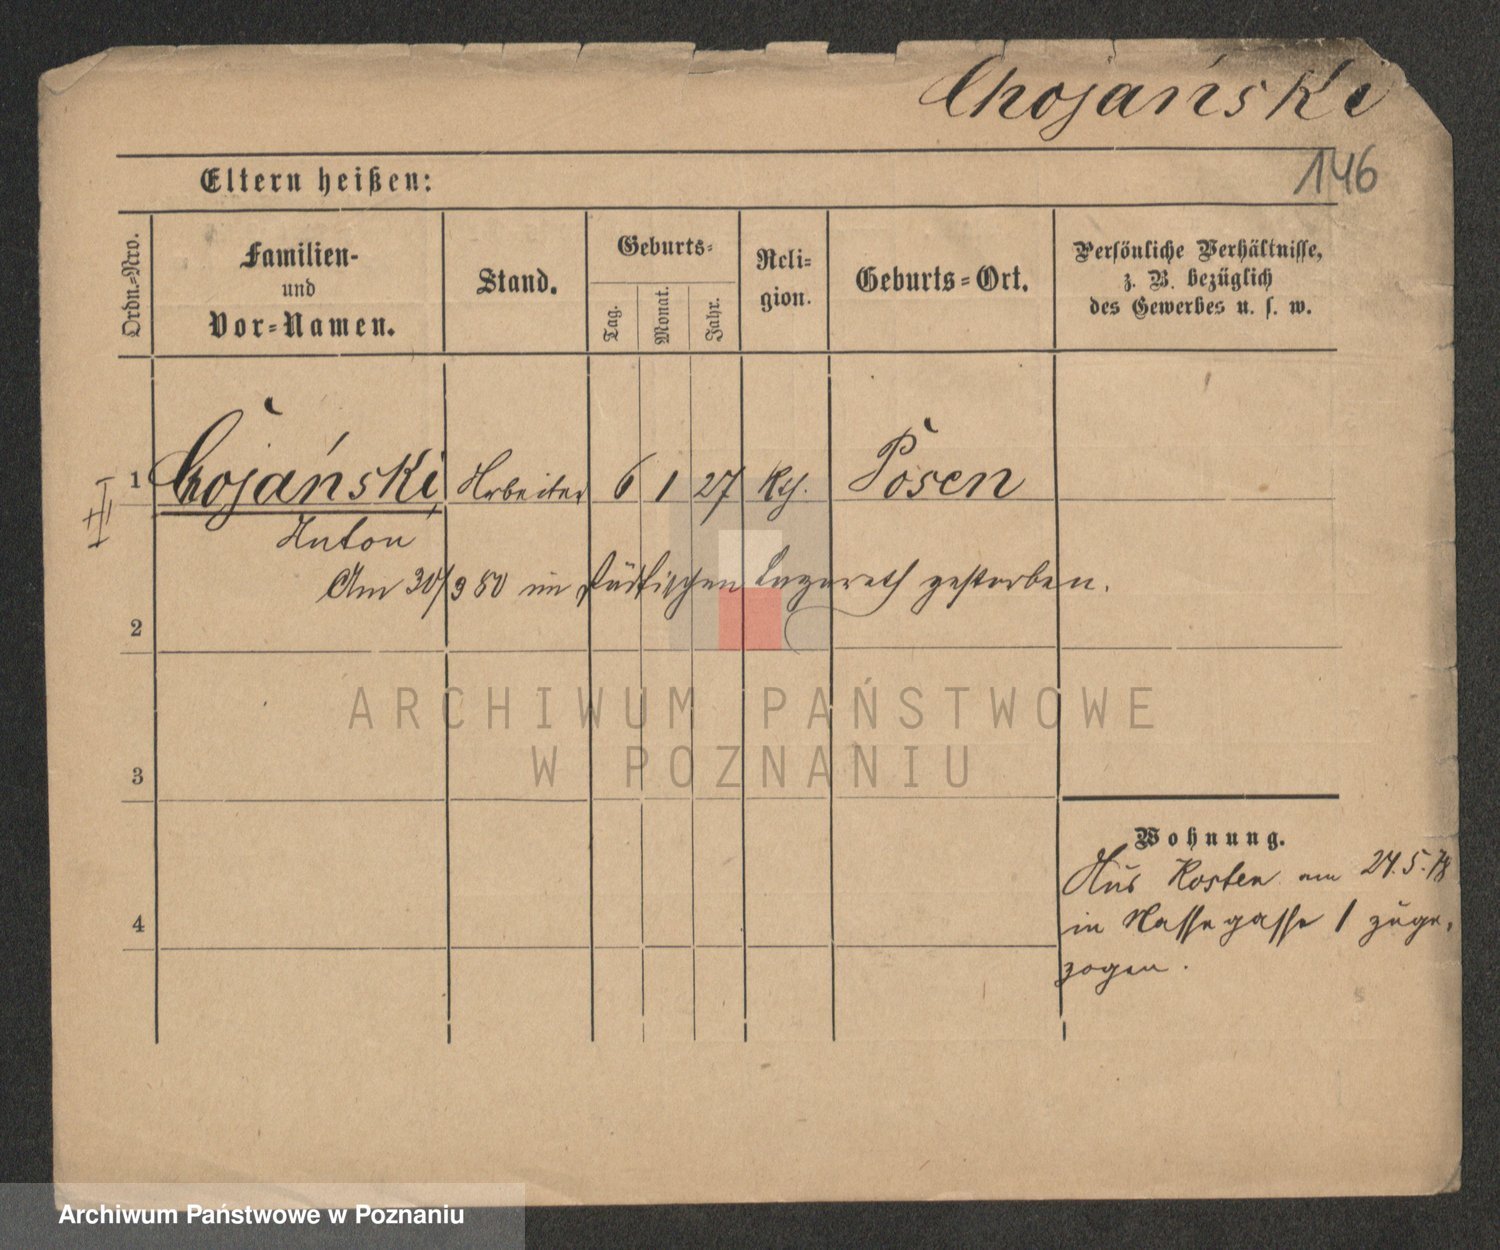 Chojański
146
Eltern heißen:
Ordn.-Nro.
Familien-
und
Vor-Namen.
Stand.
Geburts-
Tag.
Monat.
Jahr.
Reli-
gion.
Geburts-Ort.
Persönliche Verhältnisse,
z. B. bezüglich
des Gewerbes u. s. w.
1 Chojański, Arbeiter 6 1 27 Kth. Posen
II
Anton
Am 30/9 80 im städtischen Lazareth gestorben.
2
ARCHIWUM PAŃSTWOWE
W POZNANIU
3
Wohnung.
Aus Kosten am 24.5.78
in Nassegasse 1 zuge-
zogen.
4
Archiwum Państwowe w Poznaniu